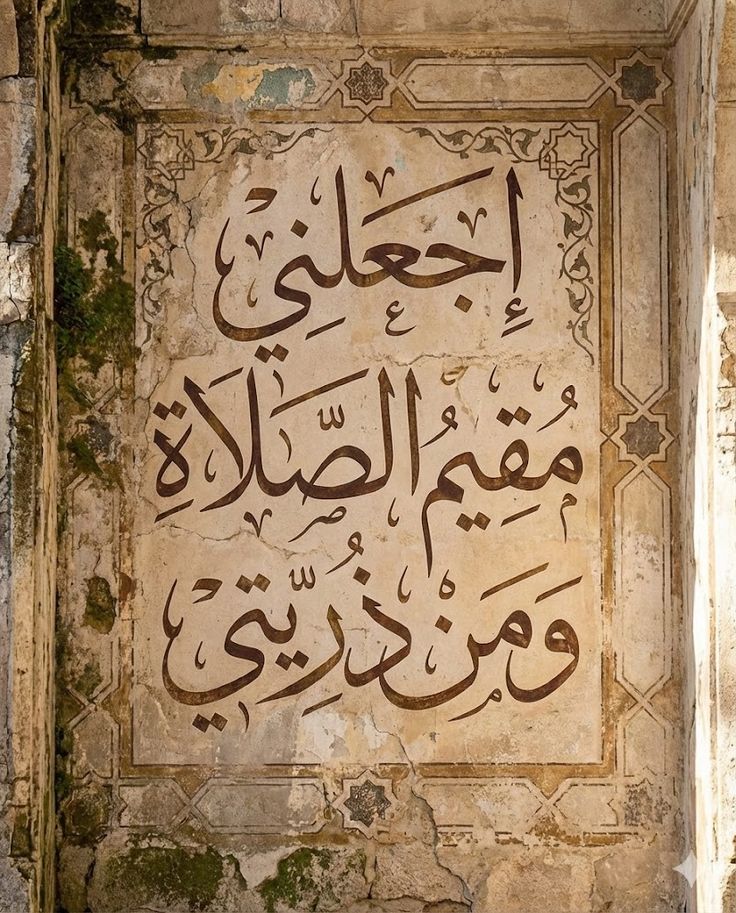 إِجْعَلْنِي
مُقِيمُ الصَّلَاةِ
وَمَنْ ذُرِّيَّتِي